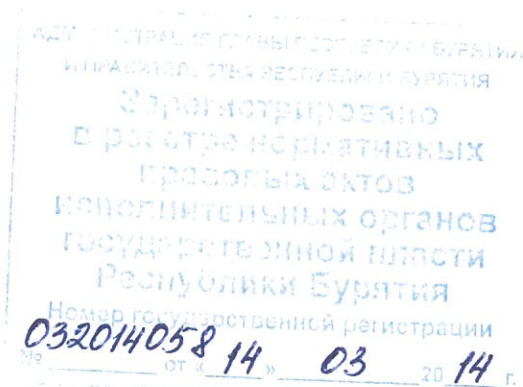 АДМИНИСТРАЦИЯ ГЛАВЫ РЕСПУБЛИКИ БУРЯТИЯ
И ПРАВИТЕЛЬСТВА РЕСПУБЛИКИ БУРЯТИЯ
Зарегистрировано
в реестре нормативных
правовых актов
исполнительных органов
государственной власти
Республики Бурятия
Номер государственной регистрации
№ 032014058 от «14» 03 2014 г.